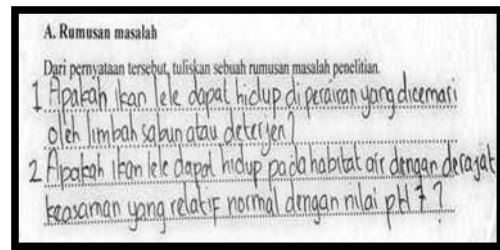 A. Rumusan masalah
Dari pernyataan tersebut, tuliskan sebuah rumusan masalah penelitian.
1 Apakah ikan lele dapat hidup di perairan yang dicemari
oleh limbah sabun atau deterjen?
2 Apakah ikan lele dapat hidup pada habitat air dengan derajat
keasaman yang relatif normal dengan nilai pH 7 ?